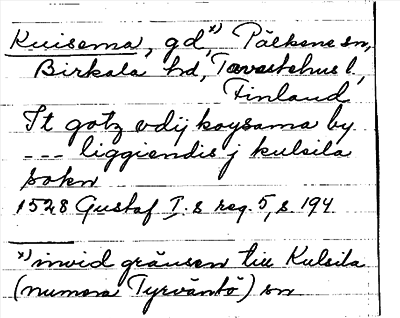 Kuisema, gd x), Pälkene sn,
Birkala hd, Tavastehus l.,
Finland
It gotz vdij koysama by
--- liggiendis j kulsila
sokn
1528 Gustaf I:s reg. 5, s. 194
x) invid gränsen till Kulsila
(numera Tyrväntö) sn